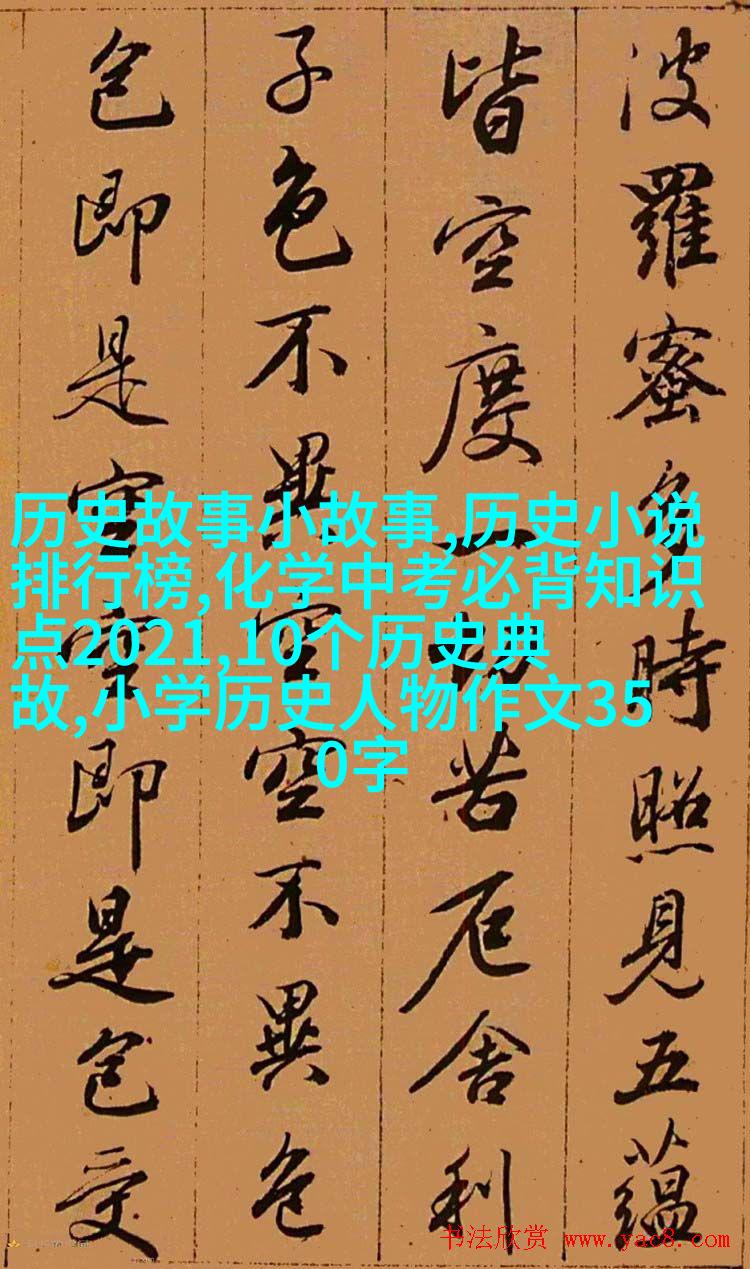 波羅蜜多時照見五蘊
皆空度一切苦厄舍利
子色不異空空不異色
色即是空空即是色受
历史故事小故事,历史小说
排行榜,化学中考必背知识
点2021,10个历史典
故,小学历史人物作文35
0字
书法欣赏 www.yac8.com